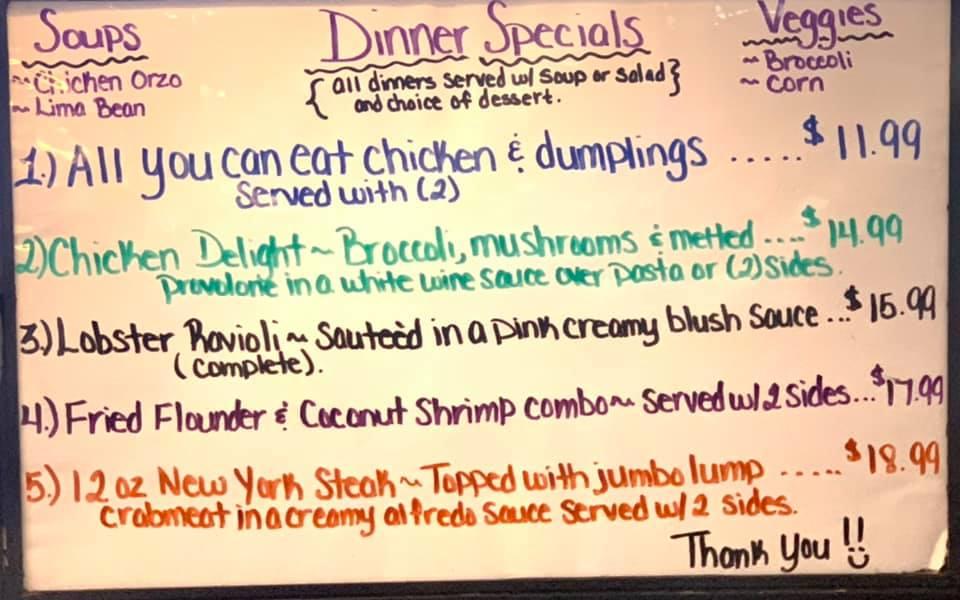 Soups
~ Chicken Orzo
~ Lima Bean
Dinner Specials
{ all dinners served w/ soup or salad }
and choice of dessert.
Veggies
~ Broccoli
~ Corn
1.) All you can eat chicken & dumplings ..... $11.99
Served with (2)
2) Chicken Delight ~ Broccoli, mushrooms & metted .... $14.99
provolone in a white wine sauce over pasta or (2) sides.
3.) Lobster Ravioli ~ Sauteèd in a pink creamy blush sauce ... $15.99
(complete).
4.) Fried Flounder & Coconut Shrimp combo ~ Served w/ 2 sides... $17.99
5.) 12 oz New York Steak ~ Topped with jumbo lump ..... $18.99
crabmeat in a creamy alfredo sauce served w/ 2 sides.
Thank You !!